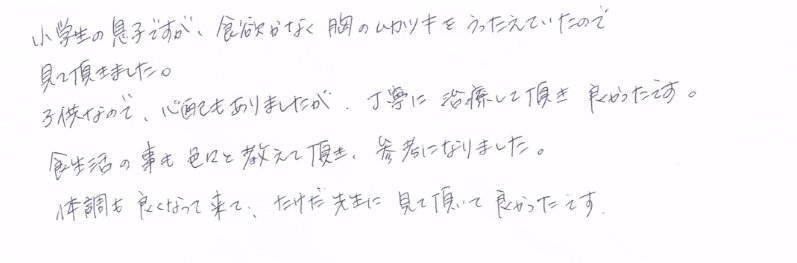 小学生の息子ですが、食欲がなく胸のムカツキをうったえていたので
見て頂きました。
子供なので、心配もありましたが、丁寧に治療して頂き良かったです。
食生活の事も色々と教えて頂き、参考になりました。
体調も良くなって来て、たけだ先生に見て頂いて良かったです。